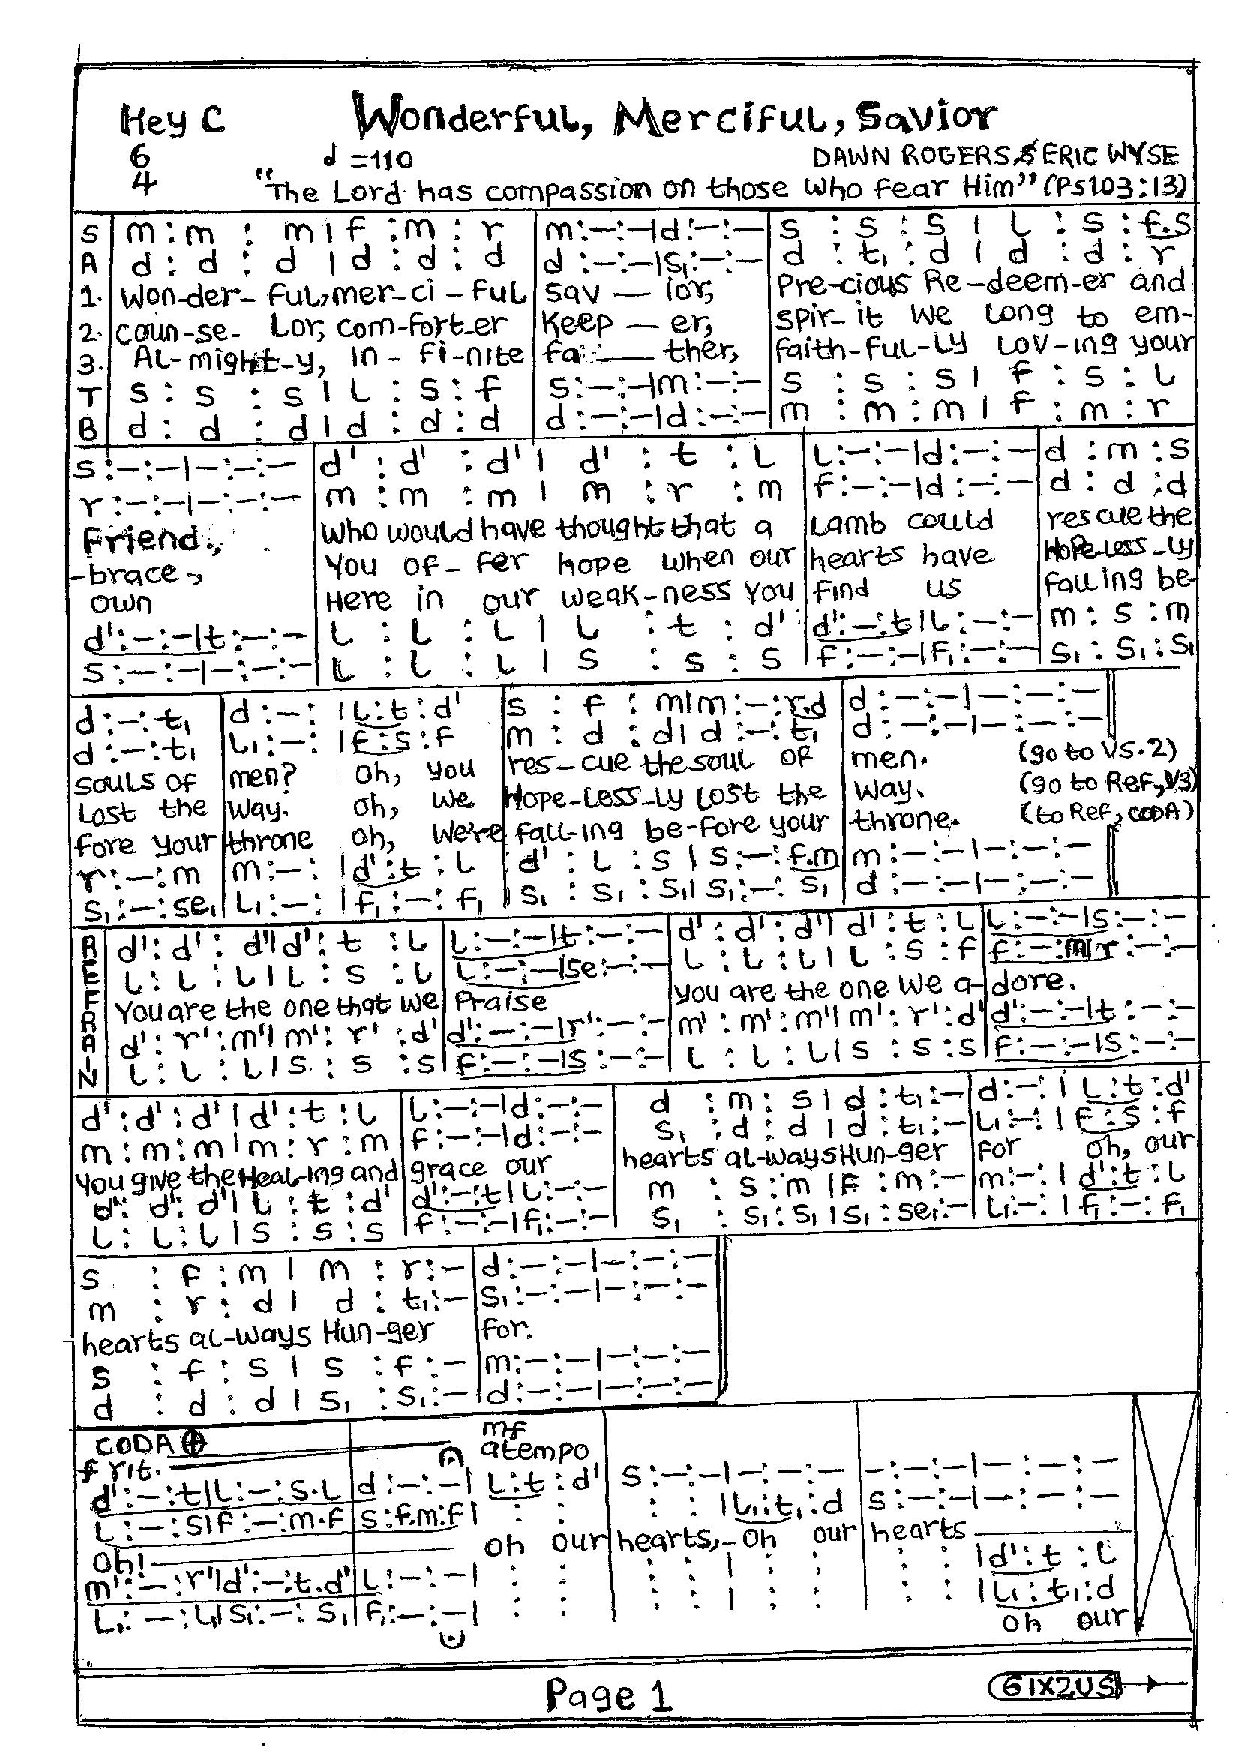 Key C Wonderful, Merciful, Savior
6 4 d =110 DAWN ROGERS & ERIC WYSE
"The Lord has compassion on those who fear Him" (Ps103:13)
S m : m : m | f : m : r m:—:—|d:—:— s : s : s | l : s : f.s
A d : d : d | d : d : d d:—:—|s₁:—:— d : t₁ : d | d : d : r
1. Won-der-ful, mer-ci-ful Sav — ior, Pre-cious Re-deem-er and
2. coun-se-lor, com-fort-er Keep — er, spir-it we long to em-
3. Al-might-y, in-fi-nite fa — ther, faith-ful-ly lov-ing your
T s : s : s | l : s : f s:—:—|m:—:— s : s : s | f : s : l
B d : d : d | d : d : d d:—:—|d:—:— m : m : m | f : m : r
s:—:—|—:—:— d' : d' : d' | d' : t : l l:—:—|d:—:— d : m : s
r:—:—|—:—:— m : m : m | m : r : m f:—:—|d:—:— d : d : d
Friend, Who would have thought that a Lamb could rescue the
-brace, You of-fer hope when our hearts have Hope-less-ly
own Here in our weak-ness you find us falling be-
d':—:—|t:—:— l : l : l | l : t : d' d':—:t|l:—:— m : s : m
s:—:—|—:—:— l : l : l | s : s : s f:—:—|f₁:—:— s₁ : s₁ : s₁
d:—:t₁ d:—: |l:t:d' s : f : m|m:—:r.d d:—:—|—:—:—
d:—:t₁ l₁:—: |f:s:f m : d : d|d:—:t₁ d:—:—|—:—:—
souls of men? oh, you res-cue the soul of men. (go to Vs.2)
lost the way. oh, we Hope-less-ly lost the way. (go to Ref, V3)
fore your throne oh, We're fall-ing be-fore your throne. (to Ref, CODA)
r:—:m m:—: |d':t:l d' : l : s | s:—:f.m m:—:—|—:—:—
s₁:—:se₁ l₁:—: |f₁:—:f₁ s₁ : s₁ : s₁| s₁:—:s₁ d:—:—|—:—:—
REFRAIN
d':d':d'|d':t:l l:—:—|t:—:— d':d':d'|d':t:l l:—:—|s:—:—
l:l:l|l:s:l l:—:—|se:—:— l:l:l|l:s:f f:—:m|r:—:—
You are the one that we Praise you are the one we a-dore.
d':r':m'|m':r':d' d':—:—|r':—:— m':m':m'|m':r':d' d':—:—|t:—:—
l:l:l|s:s:s f:—:—|s:—:— l:l:l|s:s:s f:—:—|s:—:—
d':d':d'|d':t:l l:—:—|d:—:— d : m : s | d : t₁:— d:—:|l:t:d'
m:m:m|m:r:m f:—:—|d:—:— s₁ : d : d | d : t₁:— l₁:—:|f:s:f
You give the Heal-ing and grace our hearts al-ways Hun-ger for oh, our
d':d':d'|l:t:d' d':—:t|l:—:— m : s : m |f : m:— m:—:|d':t:l
l:l:l|s:s:s f:—:—|f₁:—:— s₁ : s₁:s₁|s₁:se₁:— l₁:—:|f₁:—:f₁
s : f : m | m : r:— d:—:—|—:—:—
m : r : d | d : t₁:— s₁:—:—|—:—:—
hearts al-ways Hun-ger for.
s : f : s | s : f :— m:—:—|—:—:—
d : d : d | s₁ : s₁:— d:—:—|—:—:—
CODA mf
f rit. atempo
d':—:t|l:—:s.l d:—:—| l:t:d' s:—:—|—:—:— —:—:—|—:—:—
l:—:s|f:—:m.f s:f.m:f| : : : : |l₁:t₁:d s:—:—|—:—:—
oh! oh our hearts, oh our hearts
m':—:r'|d':—:t.d' l:—:—| : : : : | : : : : |d':t:l
l₁:—:l₁|s₁:—:s₁ f₁:—:—| : : : : | : : : : |l₁:t₁:d
oh our
Page 1 GIX2US